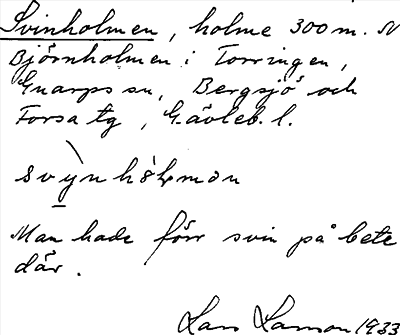 Svinholmen, holme 300 m. N
Björnholmen i Torringen,
Gnarps sn, Bergsjö och
Forsa tg, Gävleb. l.
svỳnhòɫmən
Man hade förr svin på bete
där.
Lars Larsson 1933